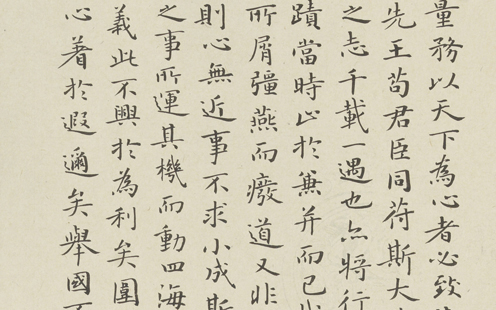 量務以天下為心者必致
先王苟君臣同苻斯大
之志千載一遇也亦將行
蹟當時止於兼并而已
所屑彊燕而癈道又非
則心無近事不求小成斯
之事所運其機而動四海
義此不興於為利矣圍
心著於遐邇矣舉國不